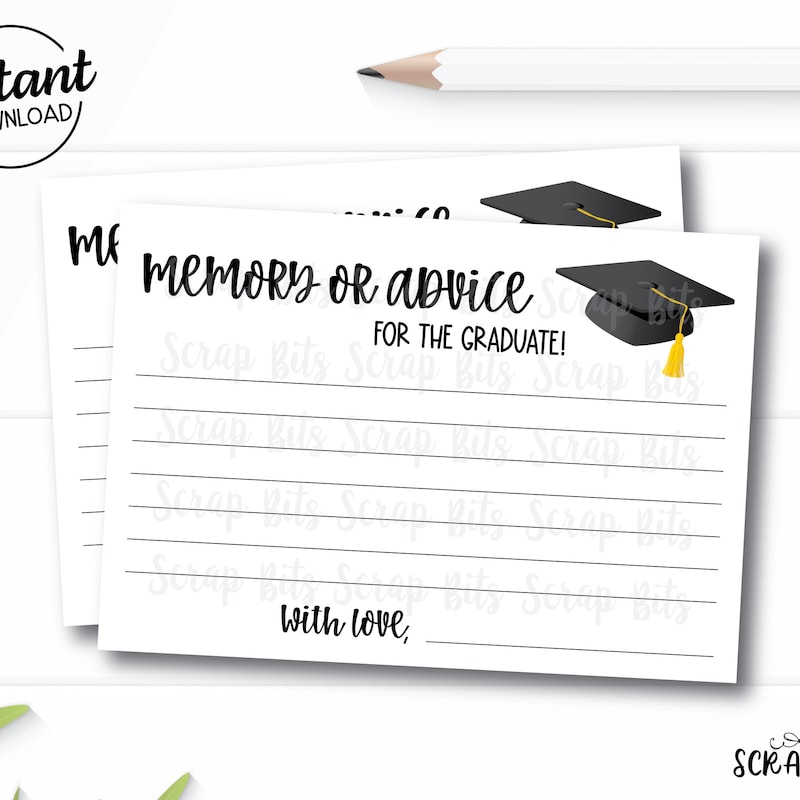 memory or advice
FOR THE GRADUATE!
Scrap Bits Scrap Bits Scrap Bits
Scrap Bits Scrap Bits Scrap Bits
Scrap Bits Scrap Bits Scrap Bits
Scrap Bits Scrap Bits Scrap Bits
Scrap Bits Scrap Bits Scrap Bits
With love,